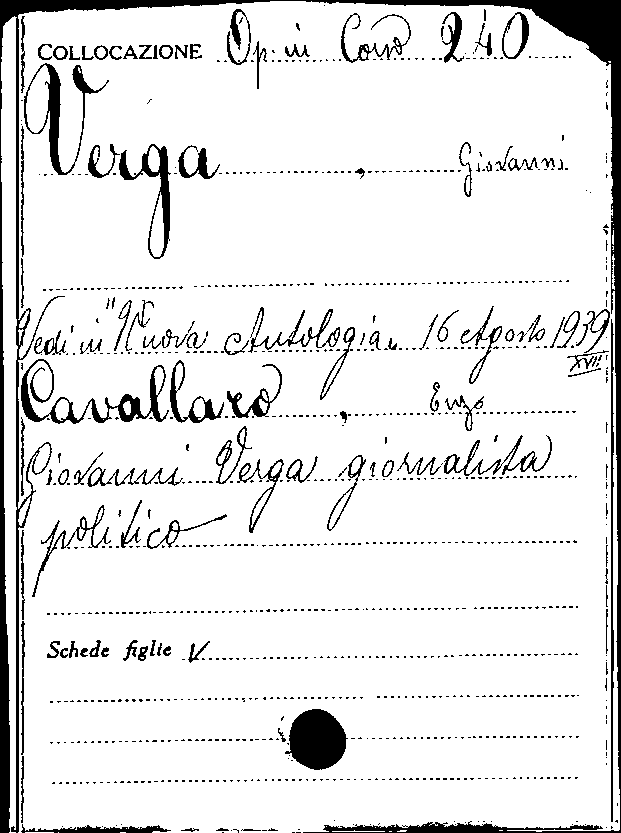 COLLOCAZIONE Op. in Corso 240
Verga, Giovanni
Vedi in "Nuova Antologia" 16 Agosto 1939
XVII
Cavallaro, Enzo
Giovanni Verga giornalista
politico
Schede figlie V